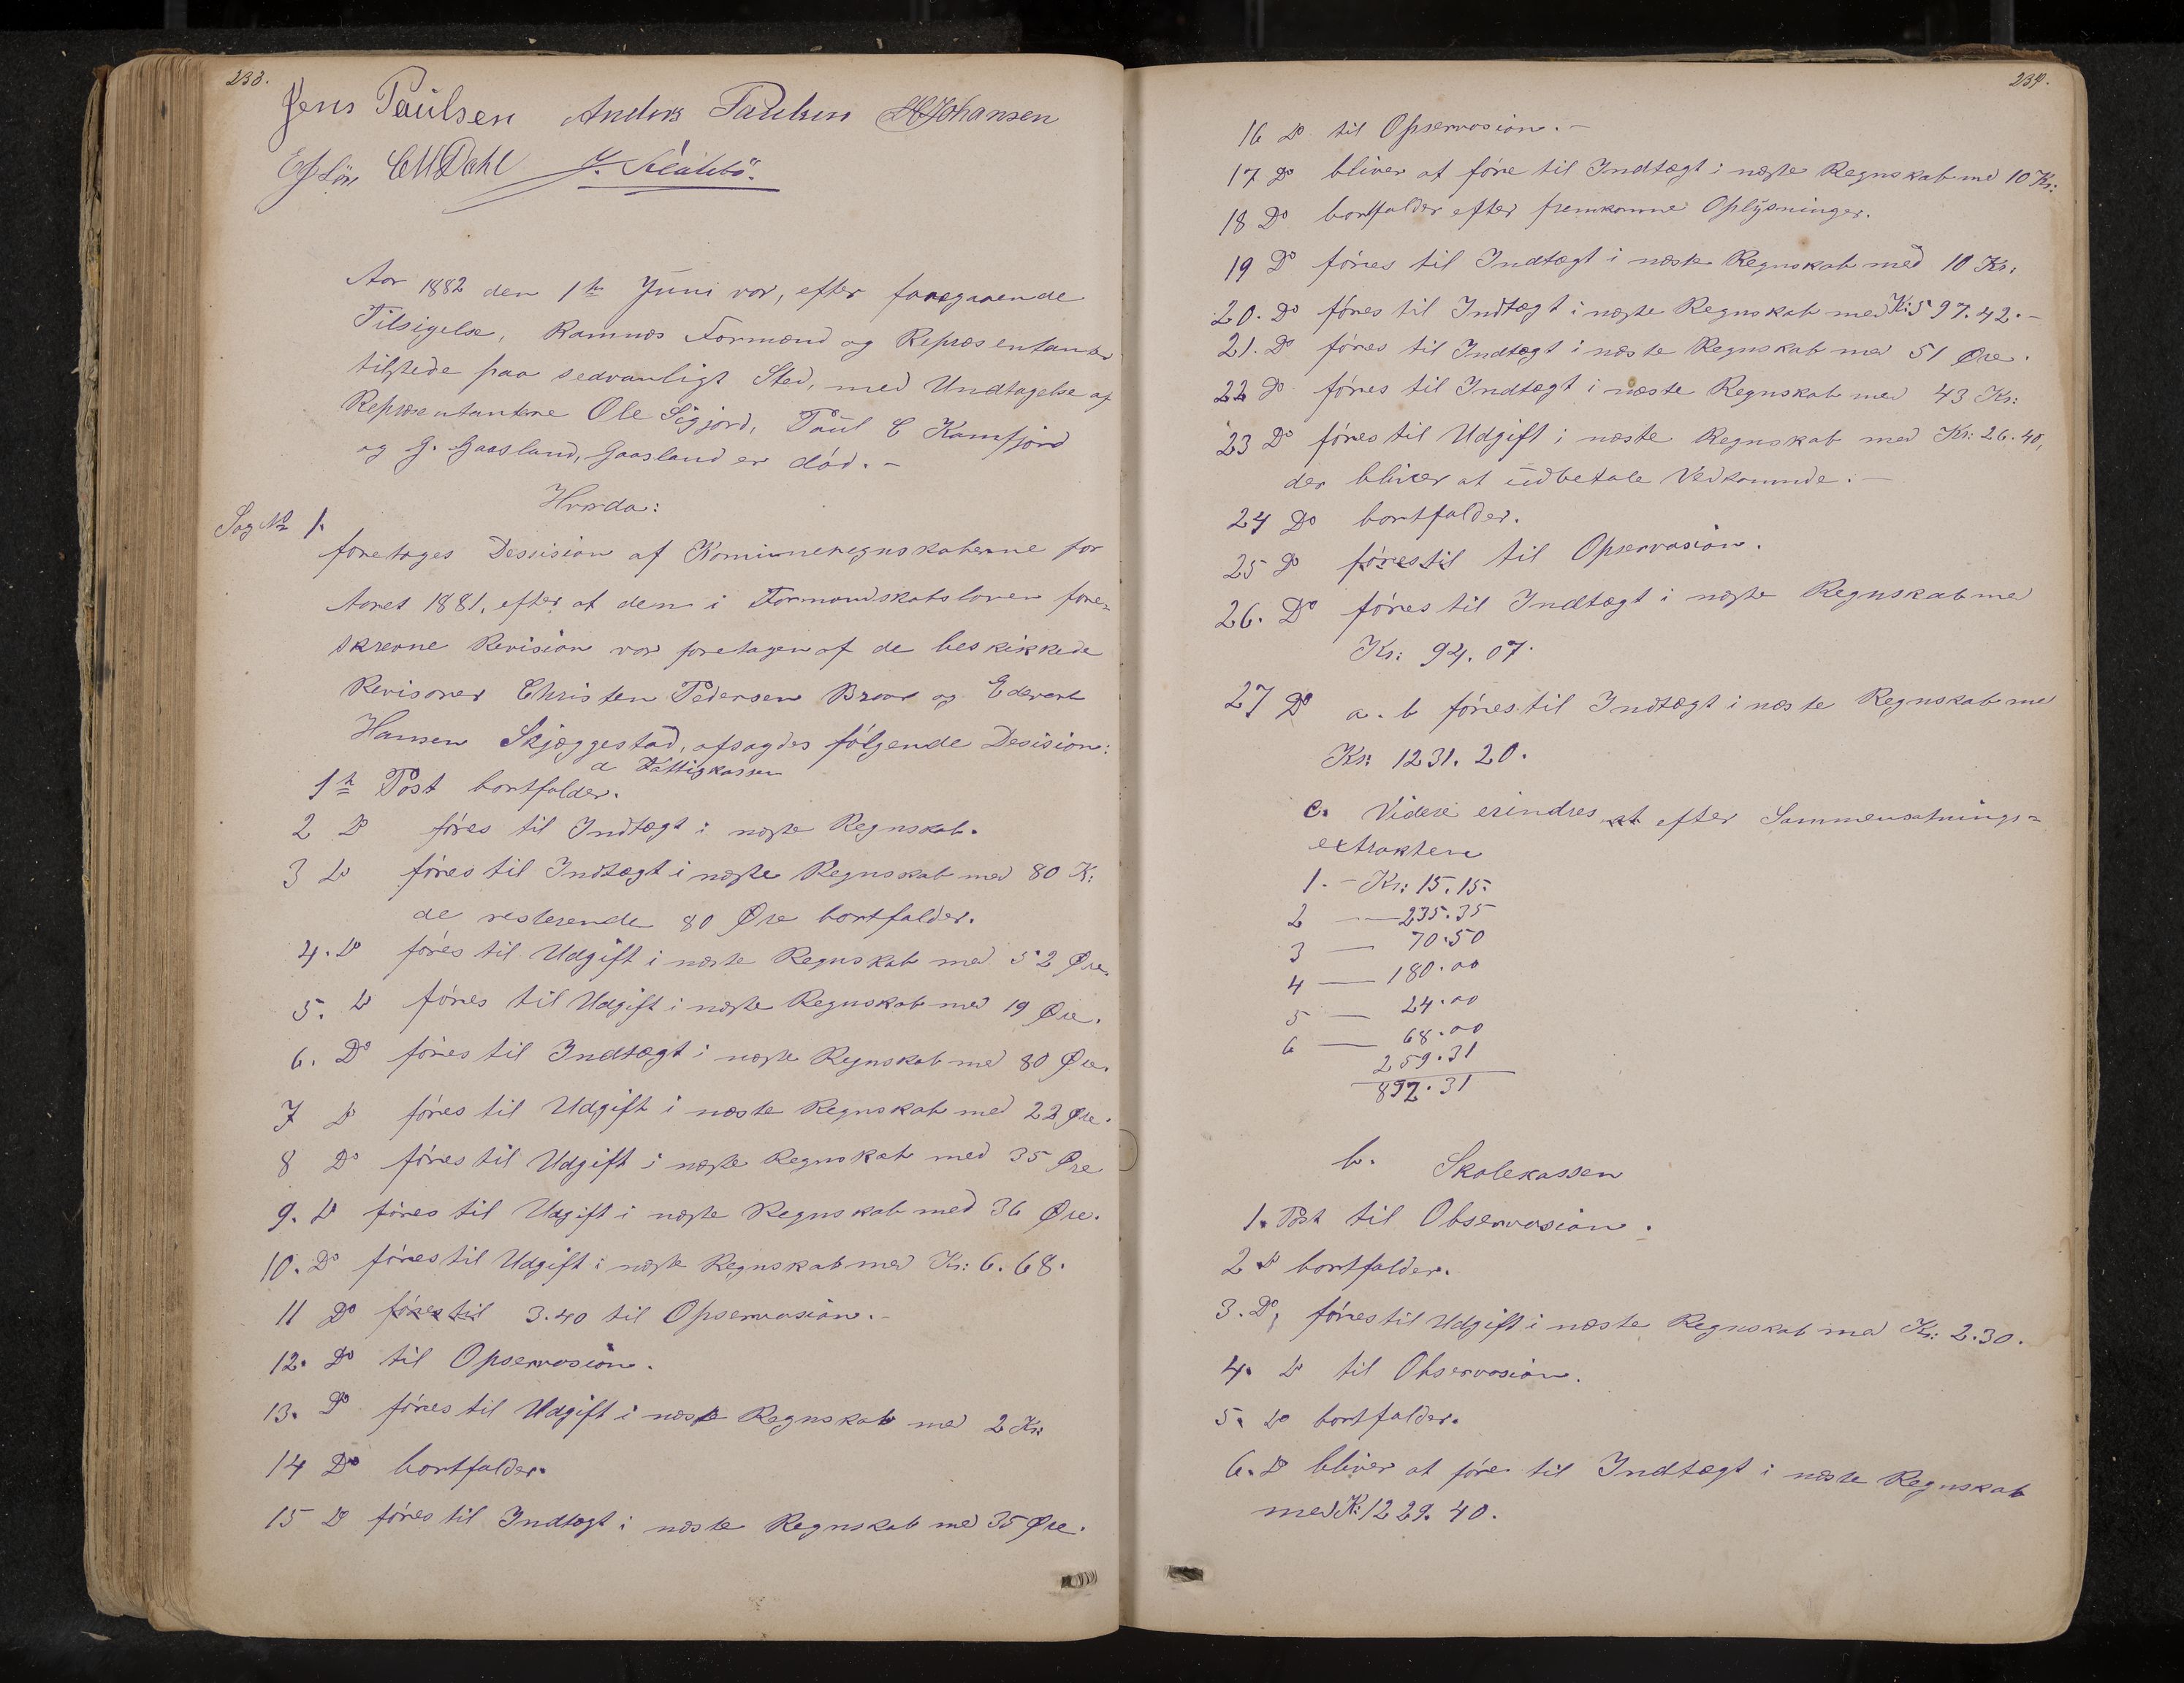 233.
Jens Paulsen Anders Paulsen HJohansen
CMDahl
Aar 1882 den 1te Juni var, efter foregaaende
Tilsigelse, Ramnæs Formænd og Repræsentanter
tilstede paa sedvanligt Sted, med Undtagelse af
Repræsentantene Ole Sigjord, Paul C Kamfjord
og G. Gaasland, Gaasland er död. –
Hvorda:
Sag No 1.
foretages Dessision af Komuneregnskaberne for
Aaret 1881, efter at den i Formandskabsloven fore=
skrevne Revision var foretagen af de beskikkede
Revisorer Christen Pedersen Braar og Edvart
Hansen Skjæggestad, afsagdes fölgende Desision:
a Fattigkassen
1te Post bortfalder.
2 Do föres til Indtægt i næste Regnskab.
3 Do föres til Indtægt i næste Regnskab med 80 K:
de resterende 80 Øre bortfalder.
4. Do föres til Udgift i næste Regnskab med 52 Øre
5. Do föres til Udgift i næste Regnskab med 19 Øre.
6. Do föres til Indtægt i næste Regnskab med 80 Øre.
7 Do föres til Udgift i næste Regnskab med 22 Øre.
8 Do föres til Udgift i næste Regnskab med 35 Øre
9. Do föres til Udgift i næste Regnskab med 36 Øre.
10. Do föres til Udgift i næste Regnskab med Kr: 6.68.
11 Do föres til 3.40 til Opservasion. –
12. Do til Opservasion.
13. Do föres til Udgift i næste Regnskab med 2 Kr:
14 Do bortfalder.
15 Do föres til Indtægt i næste Regnskab med 35 Øre.
234.
16 Do til Opservasion. –
17 Do bliver at före til Indtægt i næste Regnskab med 10 Kr:
18 Do bortfalder efter fremkomne Oplysninger.
19 Do föres til Indtægt i næste Regnskab med 10 Kr:
20. Do föres til Indtægt i næste Regnskab med K: 597.42. –
21. Do föres til Indtægt i næste Regnskab med 51 Øre.
22 Do föres til Indtægt i næste Regnskab med 43 Kr:
23 Do föres til Udgift i næste Regnskab med Kr: 26.40,
der bliver at udbetale Vedkommde. –
24 Do bortfalder.
25 Do föres til til Opservasion.
26. Do föres til Indtægt i næste Regnskab med
Kr: 94.07.
27 Do a. b föres til Indtægt i næste Regnskab med
Kr: 1231.20.
c. Videre erindres at efter Sammensætnings=
extrakten
1. – Kr: 15.15.
2 — 235.35
3 — 70.50
4 — 180.00
5 — 24.00
6 — 68.00
259.31
892.31
b. Skolekassen
1. Post til Observasion.
2 Do bortfalder.
3. Do, föres til Udgift i næste Regnskab med Kr: 2.30.
4. Do til Observasion.
5. Do bortfalder.
6. Do bliver at före til Indtægt i næste Regnskab
med K: 1229.40.